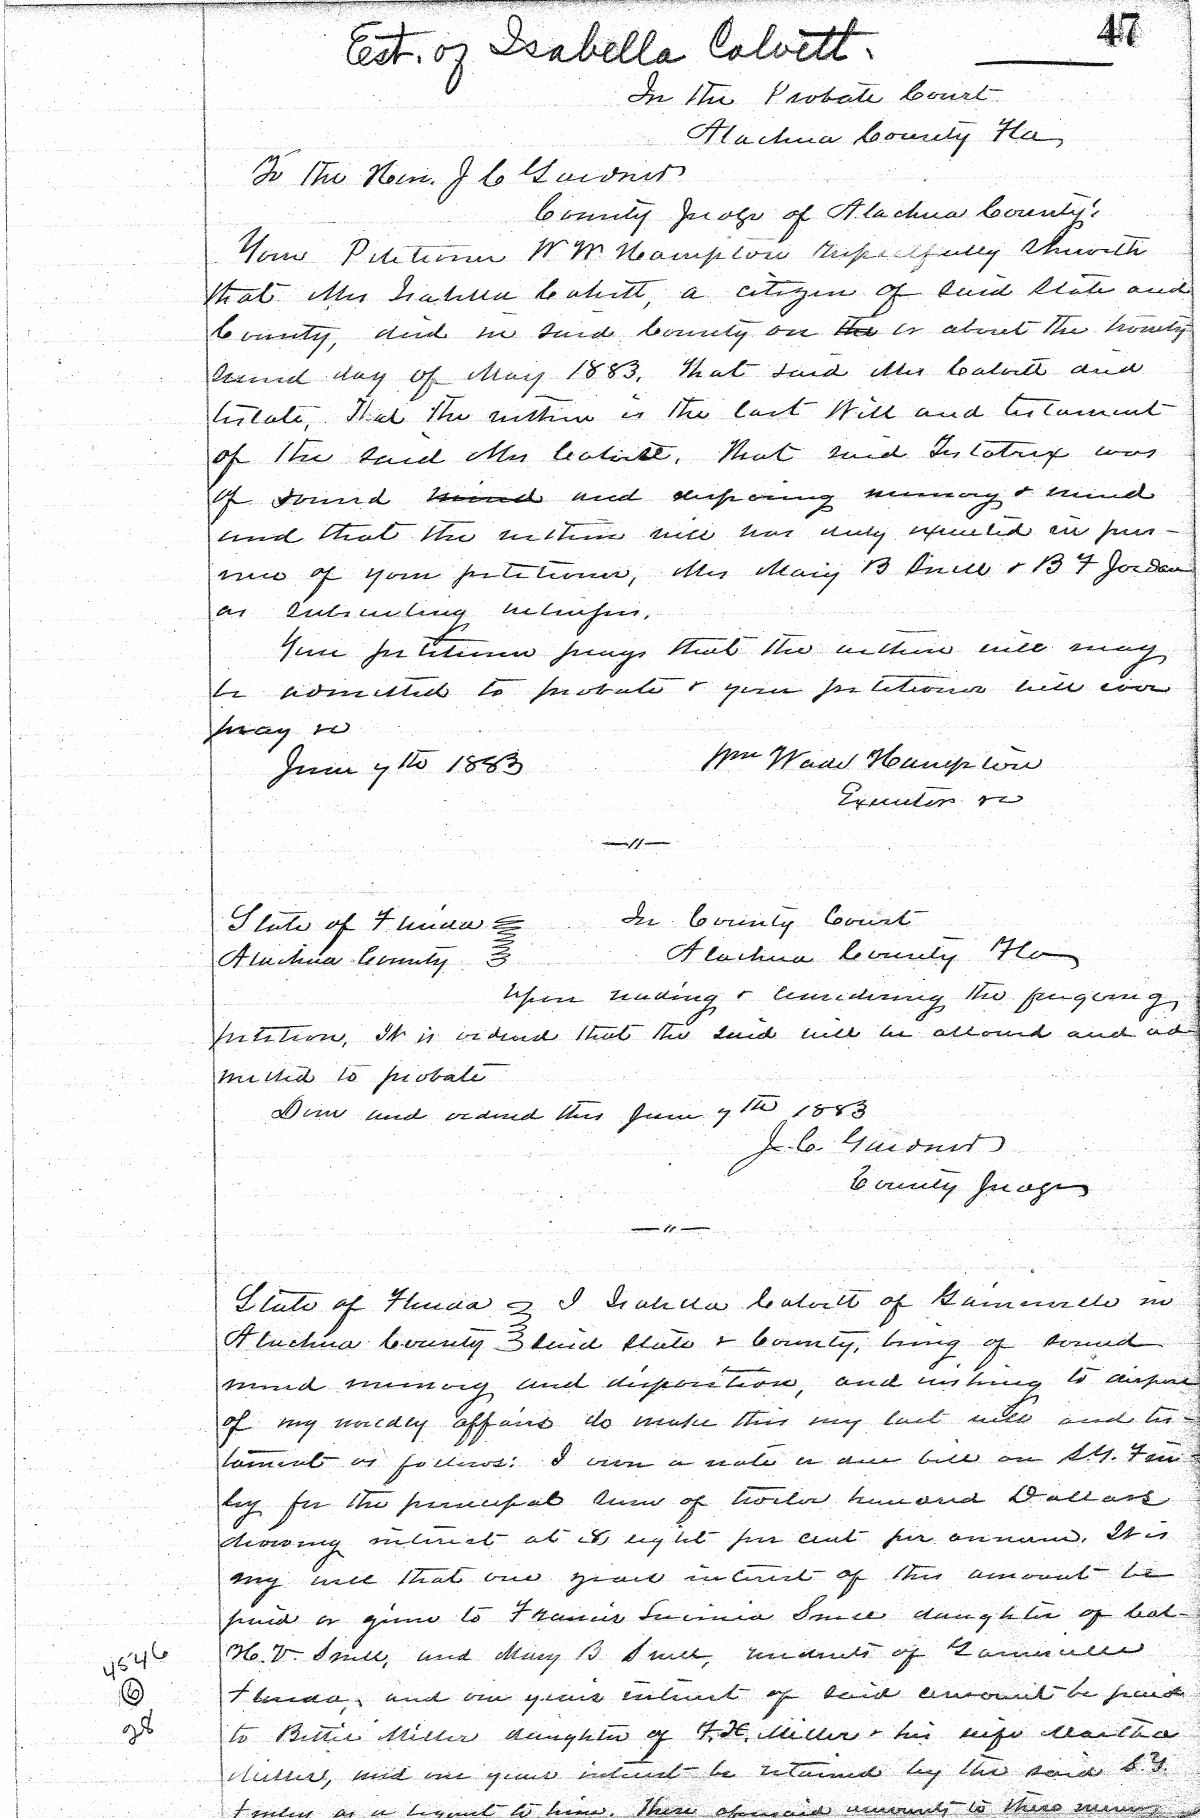 47
Est. of Isabella Colvett.
In the Probate Court
Alachua County Fla
To the Hon. J C Gardner
County Judge of Alachua County:
Your Petitioner W W Hampton respectfully Sheweth
that Mrs Isabella Colvett, a citizen of said State and
County, died in said County on the or about the twenty
second day of May 1883. That said Mrs Colvett died
testate, That the within is the last Will and testament
of the said Mrs Colvett. That said Testatrix was
of sound mind and disposing memory & mind
and that the within will was duly executed in pres-
ence of your petitioner, Mrs Mary B Snell & B F Jordan
as subscribing witnesses.
Your petitioner prays that the within will may
be admitted to probate & your petitioner will ever
pray &c
June 7th 1883
Wm Wade Hampton
Executor &c
State of Florida In County Court
Alachua County Alachua County Fla
Upon reading & considering the foregoing
petition, It is ordered that the said will be allowed and ad
mitted to probate
Done and ordered this June 7th 1883
J. C. Gardner
County Judge
State of Florida I Isabella Colvett of Gainesville in
Alachua County said State & County, being of sound
mind memory and disposition, and wishing to dispose
of my worldly affairs do make this my last will and tes-
tament as follows: I own a note or due bill on S.Y. Fin-
ley for the principal sum of twelve hundred Dollars
drawing interest at 8 eight per cent per annum. It is
my will that one years interest of this amount be
paid or given to Francis Snell daughter of Col-
H. V. Snell, and Mary B Snell, residents of Gainesville
Florida, and one years interest of said amount be paid
to Bettie Miller daughter of F. H. Miller & his wife Martha
Miller, and one years interest be retained by the said S.Y.
Finley as a bequest to him. These aforesaid amounts to these
4546
6
28